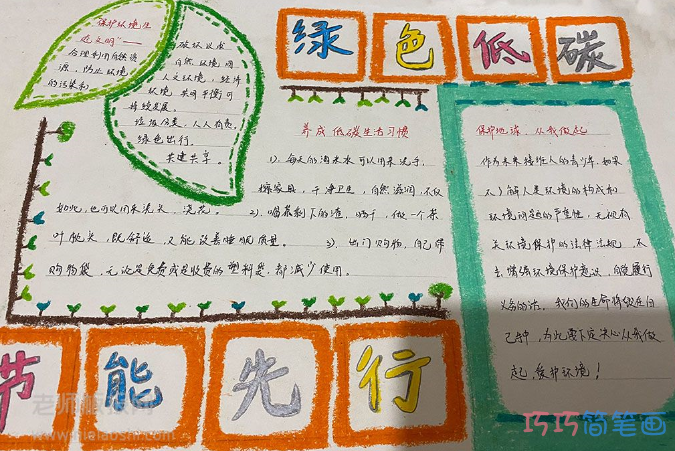 绿色低碳
保护环境生
态文明"——
合理利用自然资
源,防止环境
的污染和
破坏以求
自然环境同
人文环境,经济
环境共同平衡可
持续发展。
垃圾分类,人人有责。
绿色出行。
共建共享。
养成低碳生活习惯
1、每天的淘米水可以用来洗手,
擦家具,干净卫生,自然滋润,不仅
如此,也可以用来洗头,浇花。2)、喝茶剩下的渣,晒干,做一个茶
叶枕头,既舒适,又能改善睡眠质量。3)、出门购物,自己带
购物袋,无论是免费或是收费的塑料袋,都减少使用。
保护地球,从我做起
作为未来接班人的青少年,如果
不了解人类环境的构成和
环境问题的严重性,无视有
关环境保护的法律法规,不
去增强环境保护意识,自觉履行
义务的话,我们的生命将毁在自
己手中,为此要下定决心从我做
起,保护环境!
节能先行
老师板报网
www.hielaoshi.com
巧巧简笔画